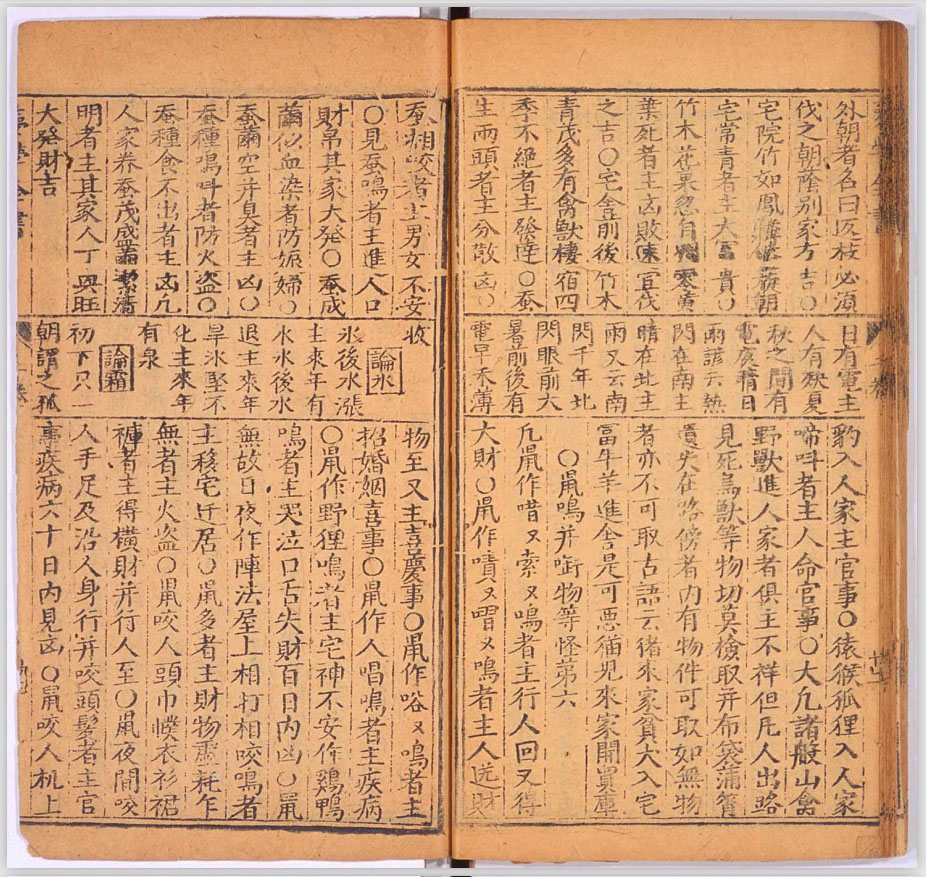 外朝者名曰反枝必須
伐之朝蔭別家方吉〇
宅院竹如鳳朝
宅常青者主大富貴〇
竹木花果忽自零黃
葉死者主凶敗速宜伐
之吉〇宅舍前後竹木
青茂多有禽獸棲宿四
季不絕者主發達〇蚕
生兩頭者主分散凶〇
日有電主
人有殃夏
秋之間有
電夜晴日
雨諺云熱
閃在南主
晴在北主
雨又云南
閃千年北
閃眼前大
暑前後有
電早禾薄
豹入人家主官事〇猿猴狐狸入人家
啼呌者主人命官事〇大凡諸般山禽
野獸進人家者俱主不祥但凡人出路
見死鳥獸等物切莫檢取并布袋蒲筲
遺失在路傍者內有物件可取如無物
者亦不可取古語云猪來家貧犬入宅
冨牛羊進舍是可悪猫児來家開買庫
〇鼡鳴并啣物等怪第六
凡鼡作唶又索又鳴者主行人回又得
大財〇鼡作嘖又又鳴者主人送財
蚕相咬者主男女不安
〇見蚕鳴者主進人口
財帛其家大發〇蚕成
繭似血染者防娠婦〇
蚕繭空并臭者主凶〇
蚕種鳴呌者防火盗〇
蚕種食不出者主凶凢
人家养蚕茂盛繭潔清
明者主其家人丁興旺
大發財吉
收
論氷
氷後水漲
主來年有
水氷後水
退主來年
旱氷堅不
化主來年
有泉
論霜
初下只一
朝謂之孤
物至又主喜慶事〇鼡作㕡又鳴者主
招婚姻喜事〇鼡作人唱鳴者主疾病
〇鼡作野狸鳴者主宅神不安作鷄鴨
鳴者主哭泣口舌失財百日內凶〇鼡
無故日夜作陣法屋上相打相咬鳴者
主移宅迁居〇鼡多者主財物虛耗乍
無者主火盗〇鼡咬人頭巾幞衣衫裙
褲者主得橫財并行人至〇鼡夜間咬
人手足及沿人身行并咬頭髮者主官
事疾病六十日內見凶〇鼡咬人机上